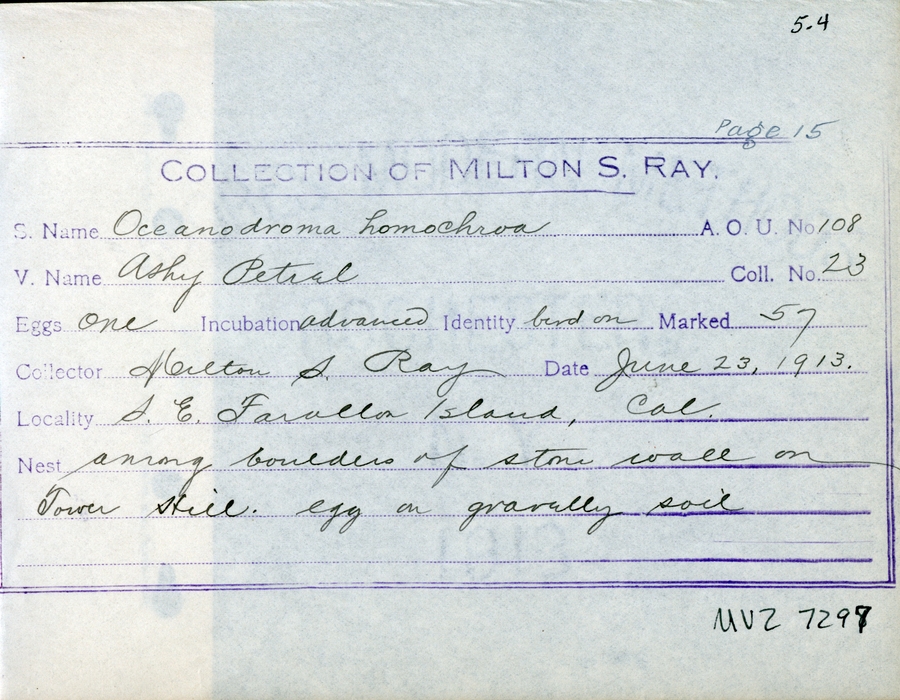 5.4
Page 15
COLLECTION OF MILTON S. RAY.
S. Name Oceanodroma homochroa A. O. U. No 108
V. Name Ashy Petrel Coll. No. 23
Eggs One Incubation advanced Identity bird on Marked 57
Collector Milton S. Ray Date June 23, 1913.
Locality S. E. Farallon Island, Cal.
Nest among boulders of stone wall on
Tower Hill. egg on gravelly soil
MVZ 7297